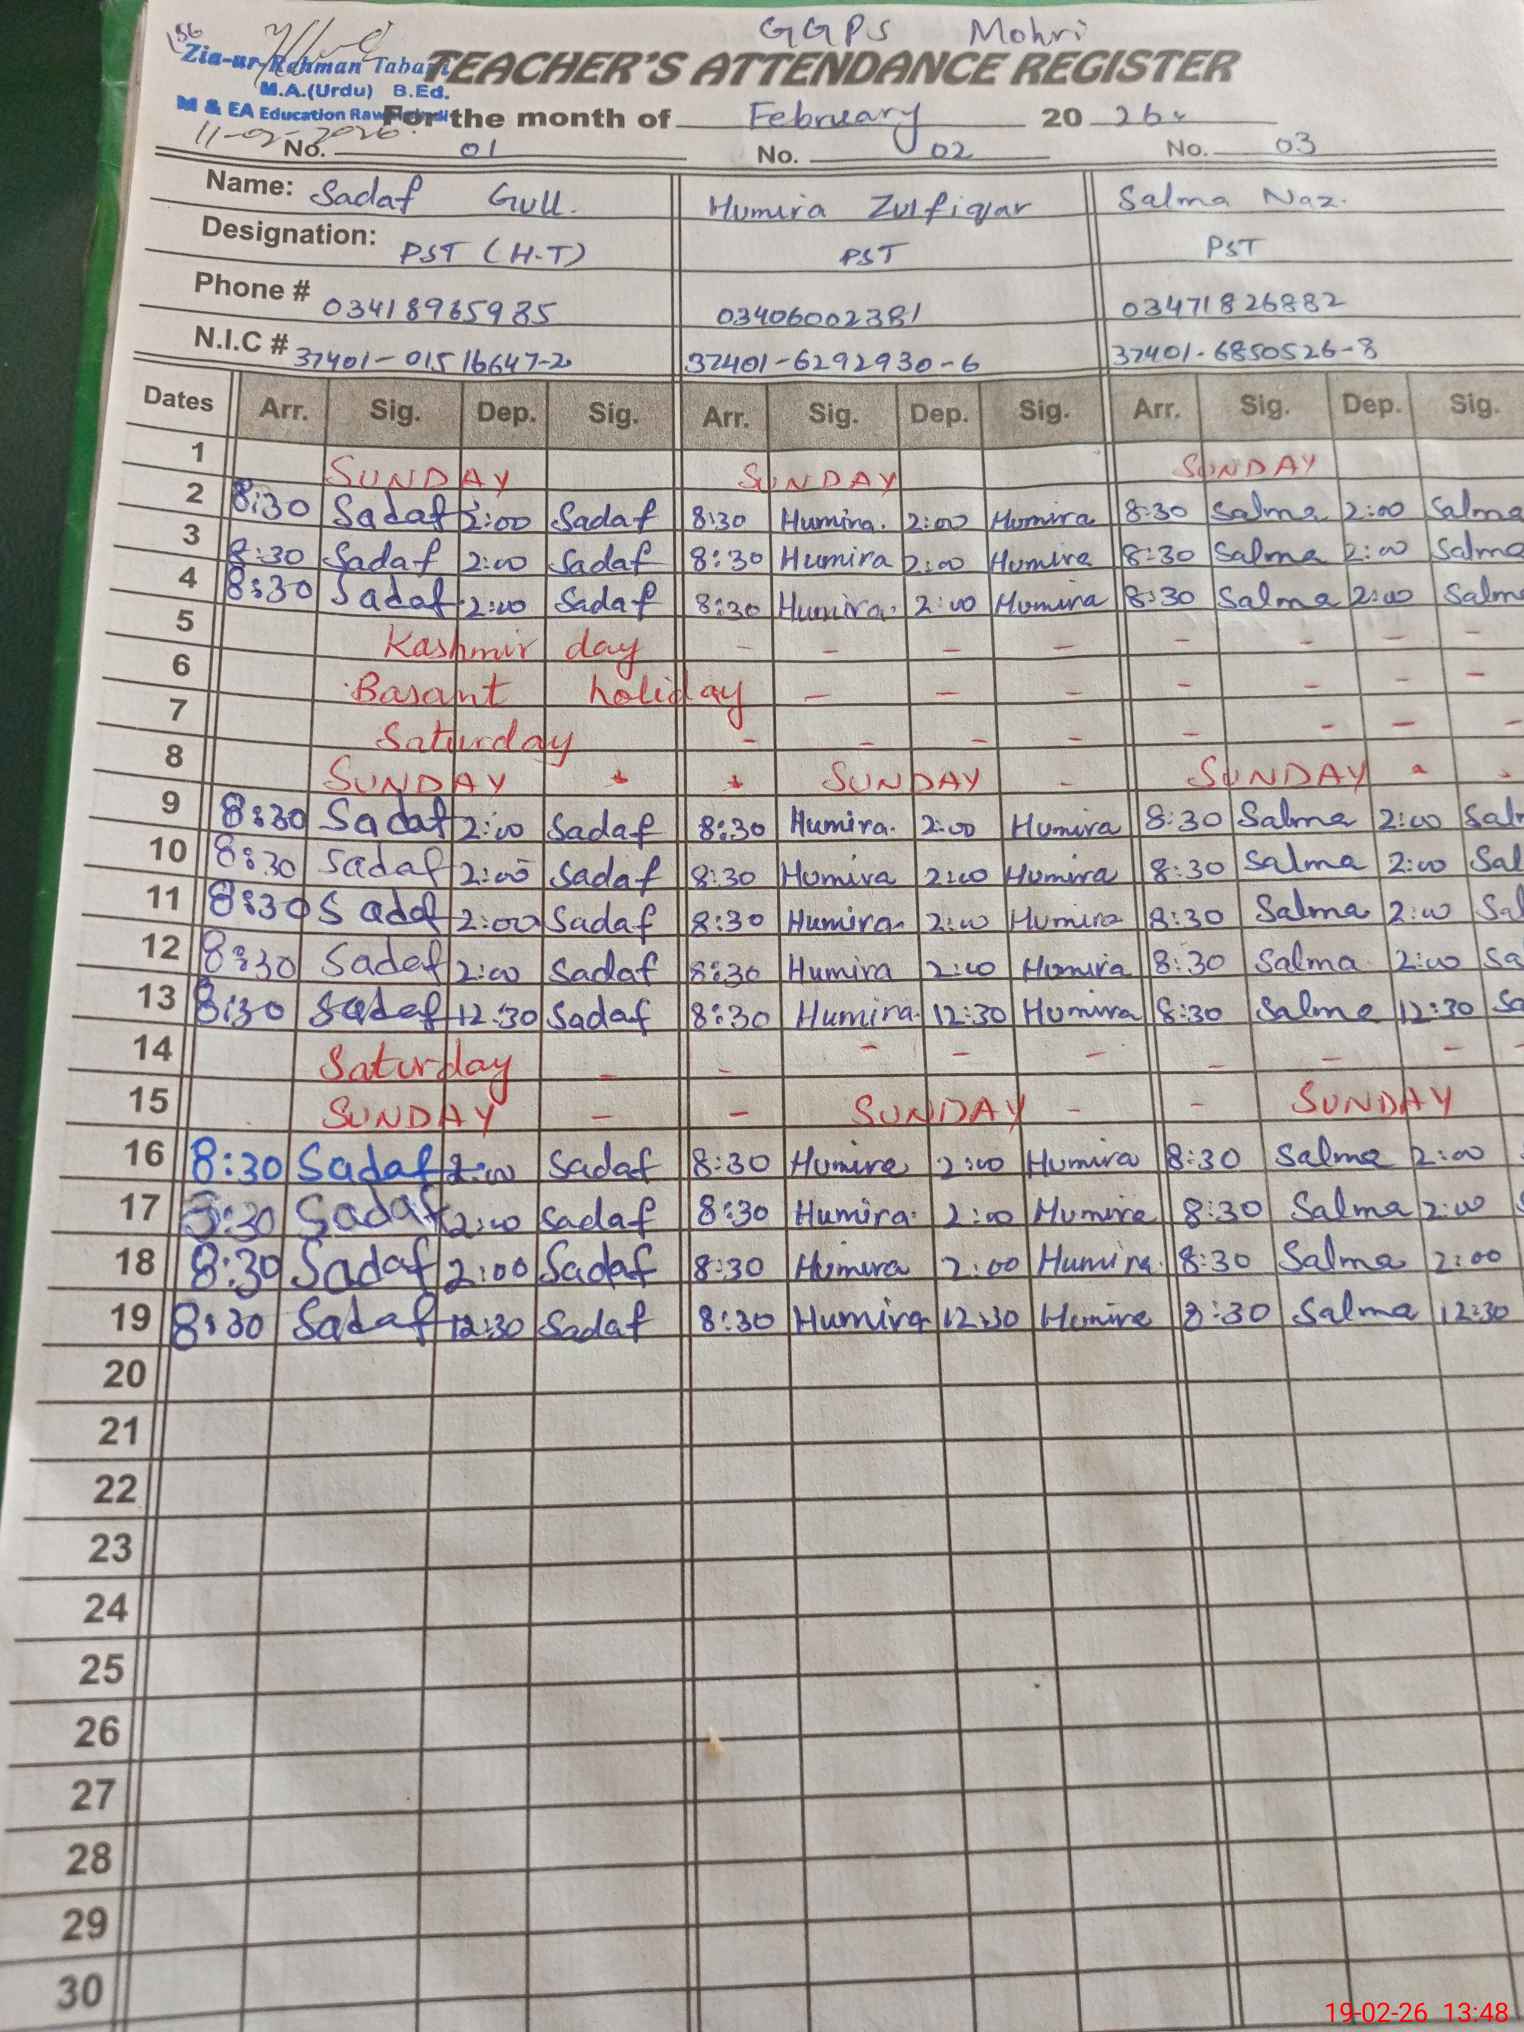 GGPS Mohri
156
Zia-ur-Rahman Taba
TEACHER'S ATTENDANCE REGISTER
M.A.(Urdu) B.Ed.
M & EA Education Raw
For the month of February 20 26
11-02-2026
No. 01 No. 02 No. 03
Name: Sadaf Gull. Humira Zulfiqar Salma Naz.
Designation: PST (H-T) PST PST
Phone # 03418965985 03406002381 03471826882
N.I.C # 37401-01516647-2 37401-6292930-6 37401-6850526-8
Dates Arr. Sig. Dep. Sig. Arr. Sig. Dep. Sig. Arr. Sig. Dep. Sig.
1 SUNDAY SUNDAY SUNDAY
2 8:30 Sadaf 2:00 Sadaf 8:30 Humira. 2:00 Humira 8:30 Salma 2:00 Salma
3 8:30 Sadaf 2:00 Sadaf 8:30 Humira 2:00 Humira 8:30 Salma 2:00 Salma
4 8:30 Sadaf 2:00 Sadaf 8:30 Humira. 2:00 Humira 8:30 Salma 2:00 Salm
5 Kashmir day - - - - - - - -
6 Basant holiday - - - - - - -
7 Saturday - - - - - - - -
8 SUNDAY SUNDAY - SUNDAY
9 8:30 Sadaf 2:00 Sadaf 8:30 Humira. 2:00 Humira 8:30 Salma 2:00 Sal
10 8:30 Sadaf 2:00 Sadaf 8:30 Humira 2:00 Humira 8:30 Salma 2:00 Sal
11 8:30 Sadaf 2:00 Sadaf 8:30 Humira 2:00 Humira 8:30 Salma 2:00 Sal
12 8:30 Sadaf 2:00 Sadaf 8:30 Humira 2:00 Humira 8:30 Salma 2:00 Sa
13 8:30 Sadaf 12:30 Sadaf 8:30 Humira. 12:30 Humira 8:30 Salma 12:30 Sa
14 Saturday - - - - - - - - -
15 SUNDAY - - SUNDAY - - SUNDAY
16 8:30 Sadaf 2:00 Sadaf 8:30 Humira 2:00 Humira 8:30 Salma 2:00
17 8:30 Sadaf 2:00 Sadaf 8:30 Humira. 2:00 Humira 8:30 Salma 2:00
18 8:30 Sadaf 2:00 Sadaf 8:30 Humira 2:00 Humira. 8:30 Salma 2:00
19 8:30 Sadaf 12:30 Sadaf 8:30 Humira 12:30 Humira 8:30 Salma 12:30
20
21
22
23
24
25
26
27
28
29
30
19-02-26 13:48